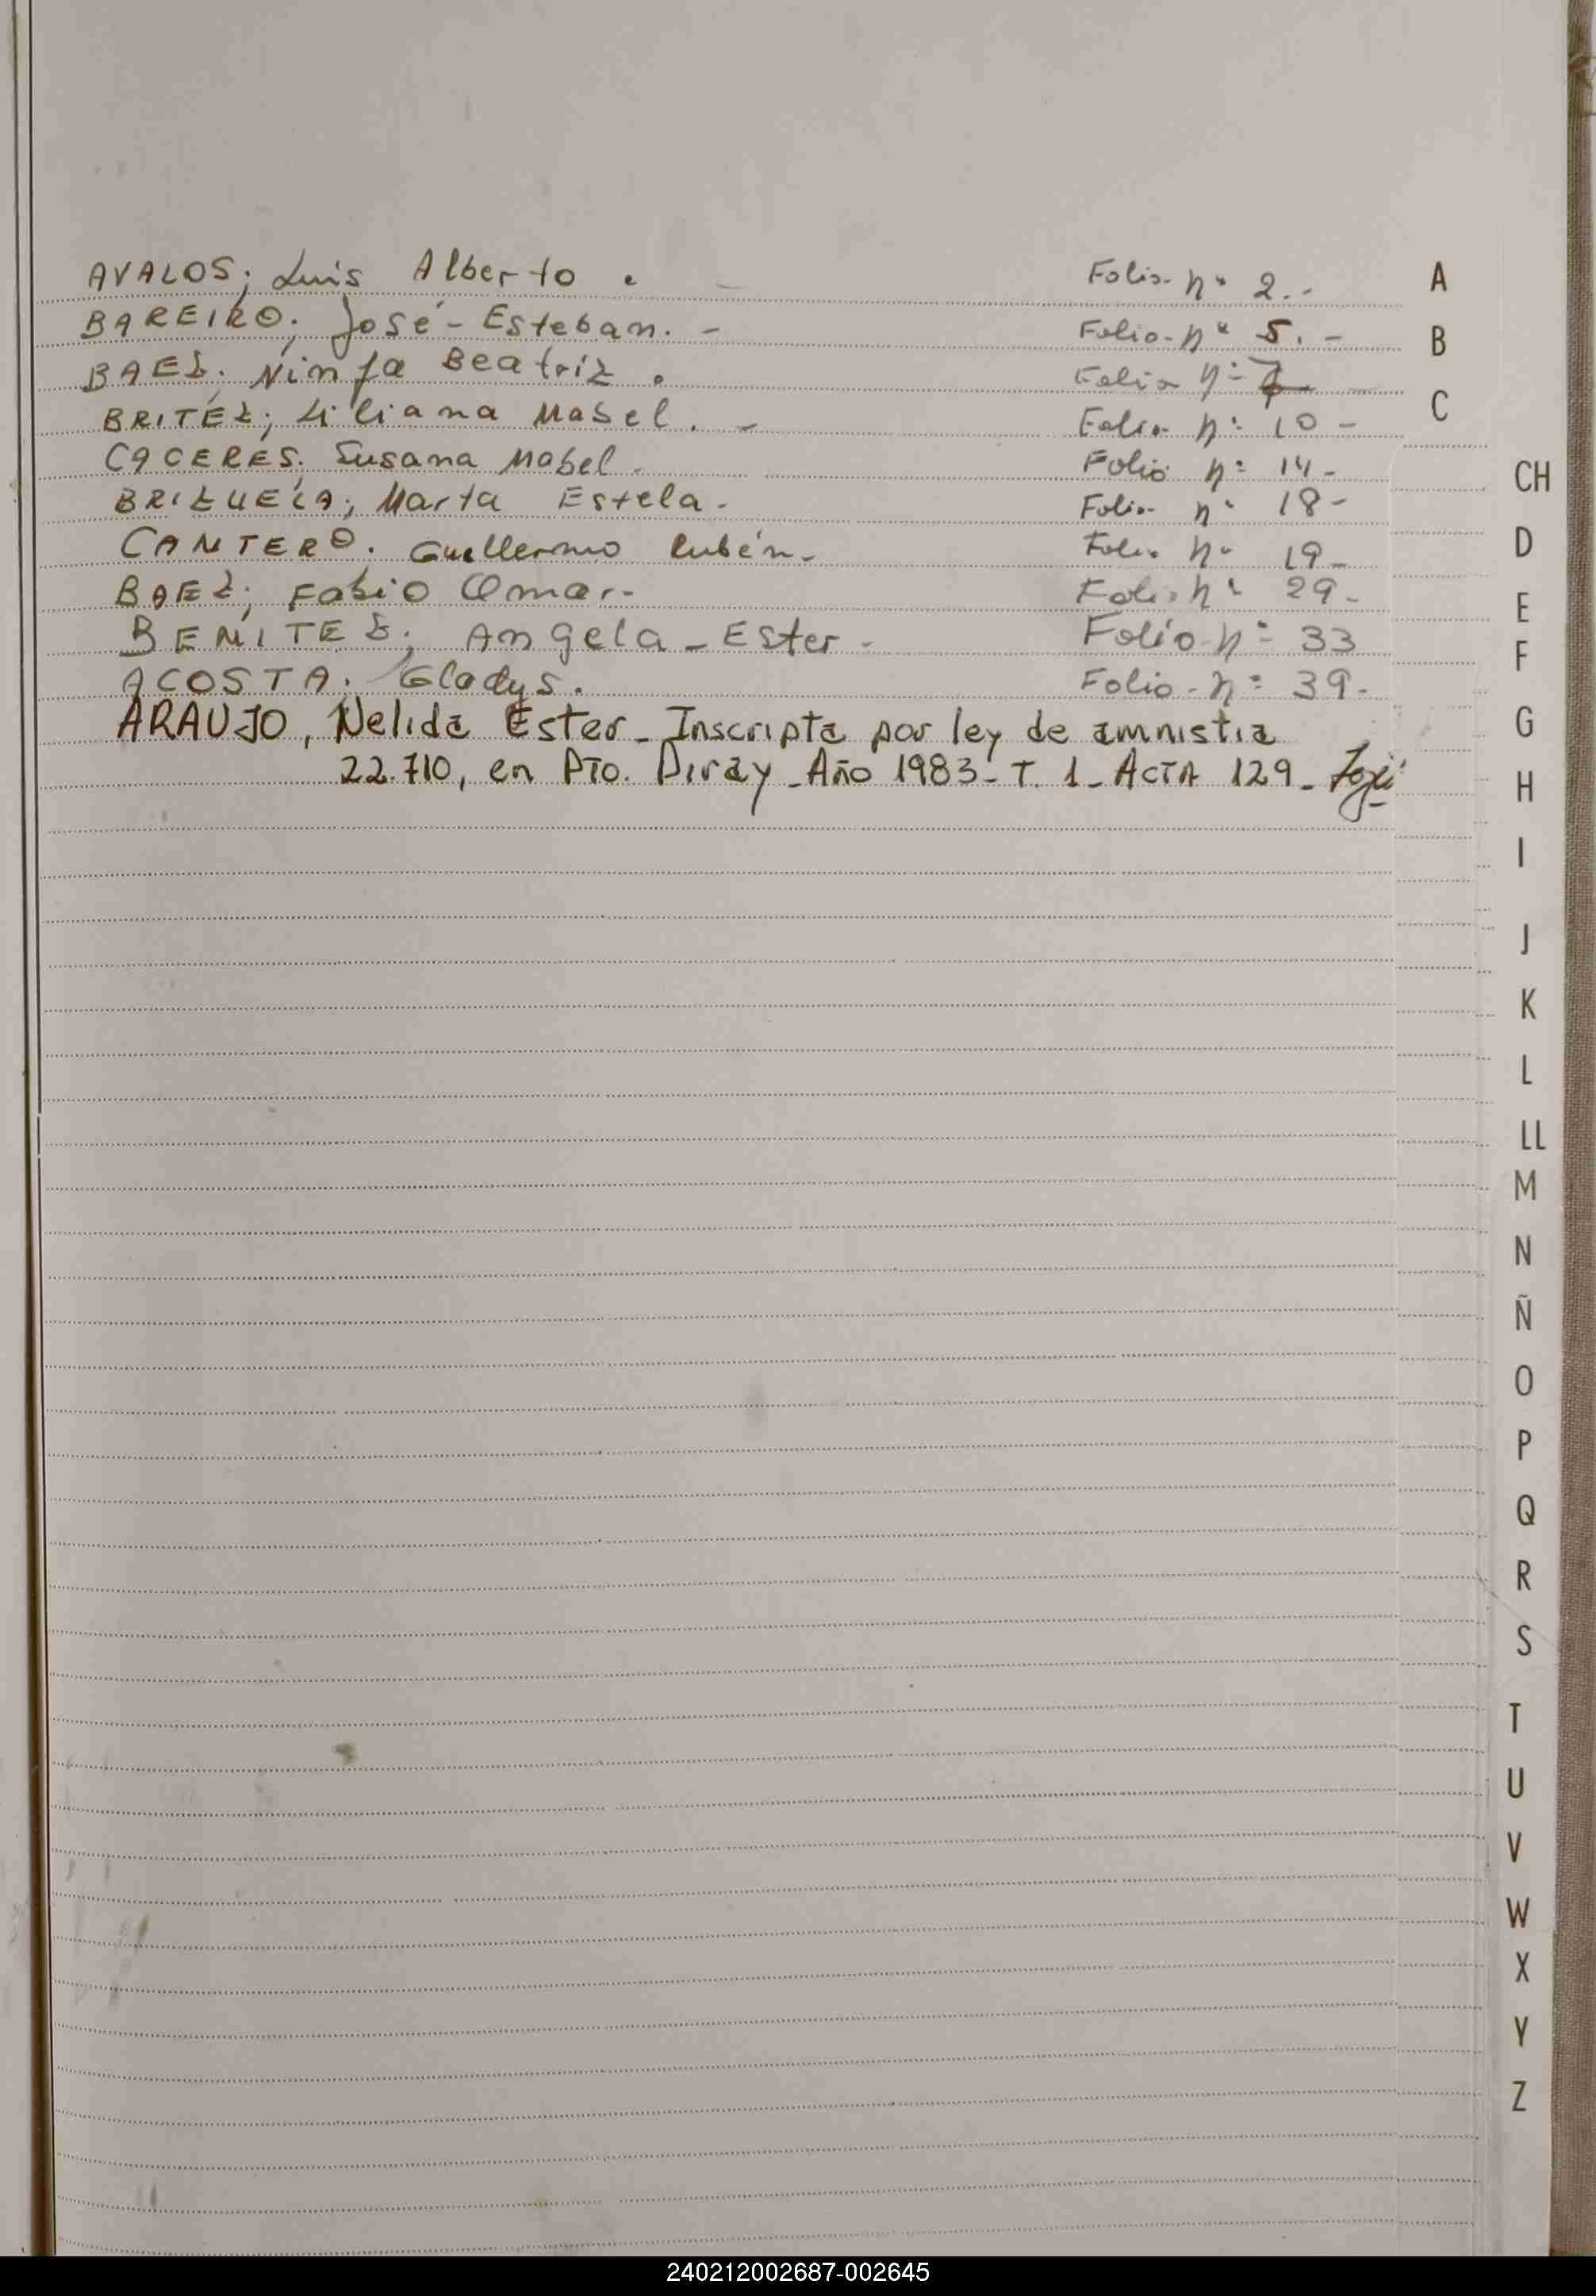 AVALOS; Luis Alberto. Folio n° 2.-
BAREIRO; José-Esteban.- Folio-n° 5.-
BAEZ; Ninfa Beatriz. Folio n° 7
BRITEZ; Liliana Mabel.- Folio n° 10-
CACERES; Susana Mabel. Folio n° 14-
BRIZUELA; Marta Estela- Folio n° 18-
CANTERO. Guillermo Rubén- Folio n° 19-
BAEZ; Fabio Omar.- Folio n° 29-
BENITEZ; Angela-Ester- Folio-n° 33
ACOSTA. Gladys. Folio-n° 39-
ARAUJO, Nelida Ester_ Inscripta por ley de amnistia
22.710, en Pto. Piray_Año 1983-T. 1_ ACTA 129_
A
B
C
CH
D
E
F
G
H
I
J
K
L
LL
M
N
Ñ
O
P
Q
R
S
T
U
V
W
X
Y
Z
240212002687-002645